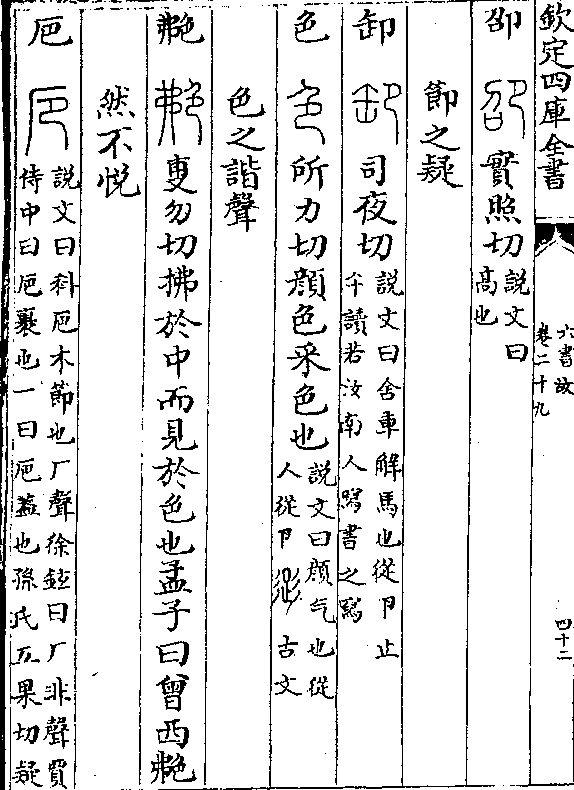 欽定四庫全書
六書故
卷二十九
四十二
卲 實照切說文曰
高也
節之疑
卸 司夜切說文曰舍車解馬也從卪止
午讀若汝南人寫書之寫
色 所力切顔色采色也說文曰顔气也從
人從卪 古文
色之諧聲
艴 叓勿切拂於中而見於色也孟子曰曾西艴
然不悦
厄 說文曰科厄木節也厂聲徐鉉曰厂非聲賈
侍中曰厄裹也一曰厄蓋也孫氏五果切疑